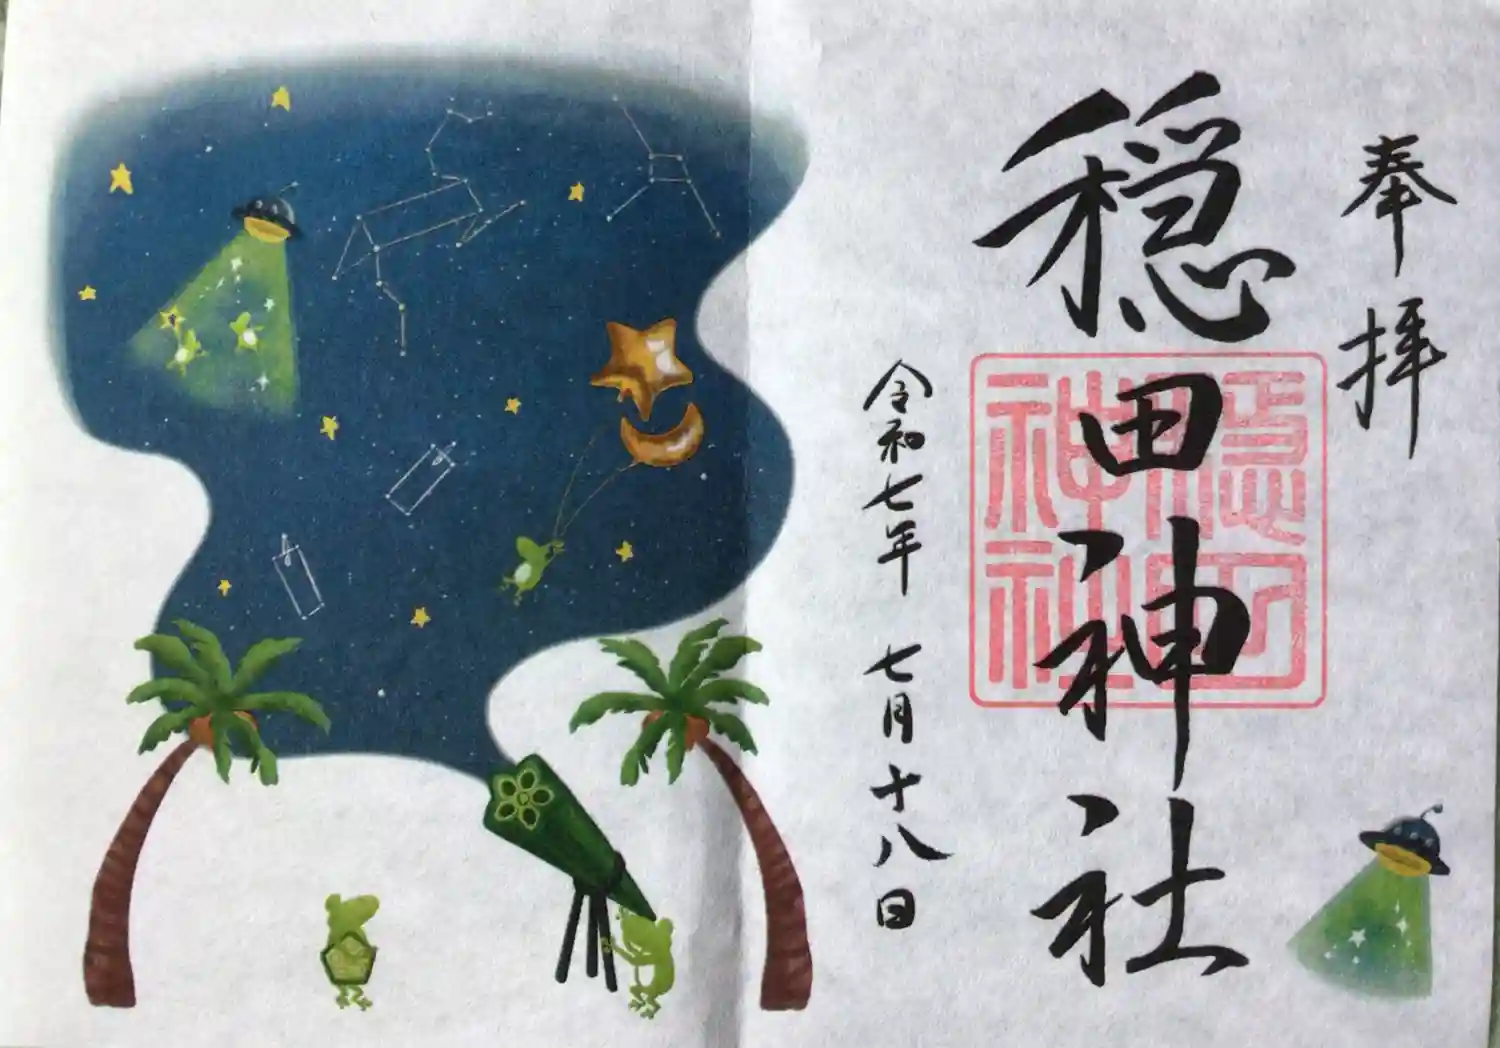 奉拝
穏田神社
穏田
神社
令和七年 七月十八日